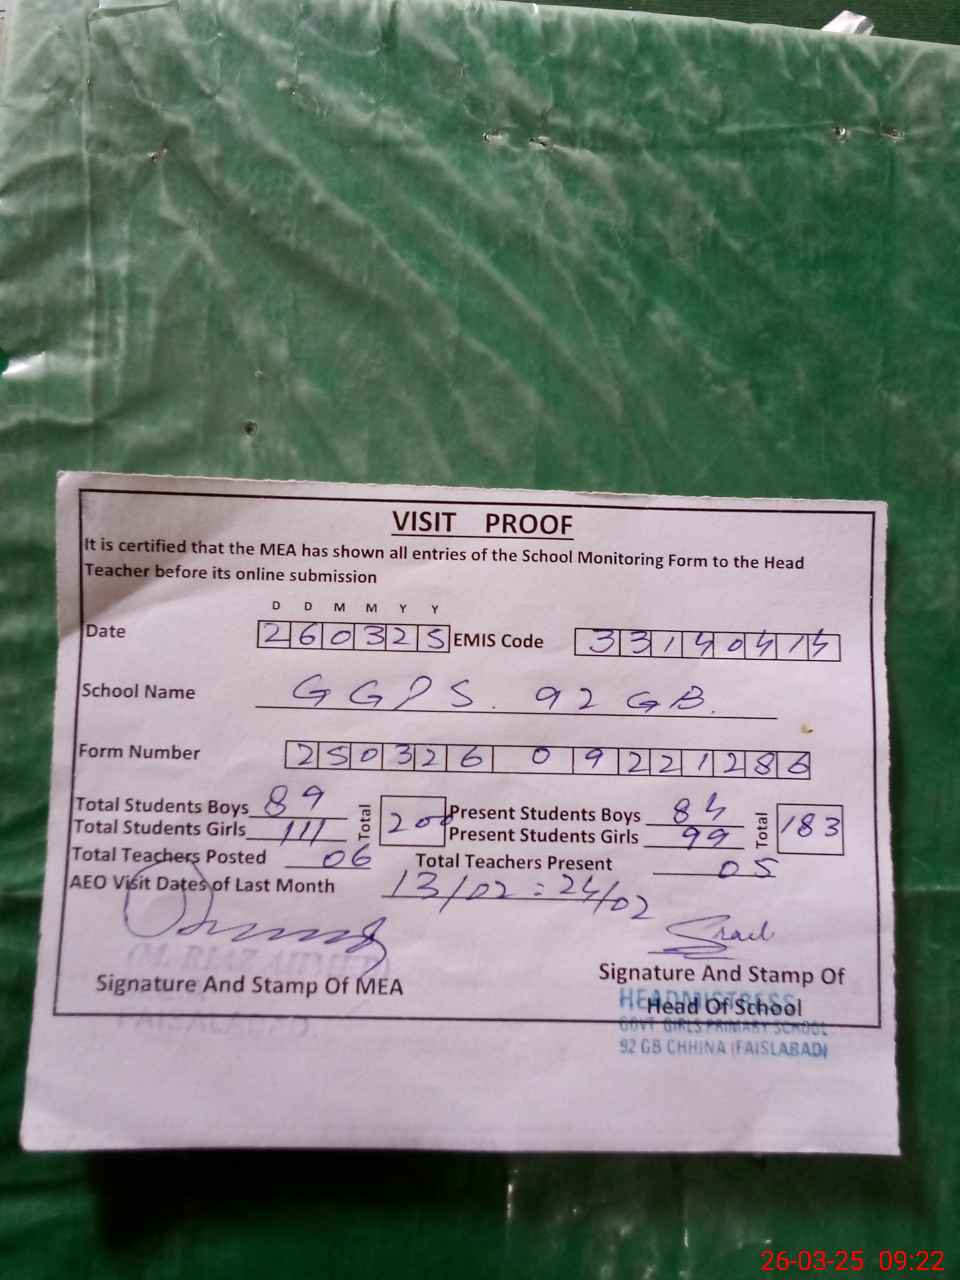 VISIT PROOF
It is certified that the MEA has shown all entries of the School Monitoring Form to the Head
Teacher before its online submission
D D M M Y Y
Date 260325 EMIS Code 33140414
School Name GGPS. 92 GB.
Form Number 250326 09221286
Total Students Boys 89 Total 200 Present Students Boys 84 Total 183
Total Students Girls 111 Present Students Girls 99
Total Teachers Posted 06 Total Teachers Present 05
AEO Visit Dates of Last Month 13/02 : 24/02
(M. RIAZ AHMED)
Signature And Stamp Of MEA Signature And Stamp Of
Head Of School
FAISALABAD.
HEADMISTRESS
GOVT GIRLS PRIMARY SCHOOL
92 GB CHHINA (FAISLABAD)
26-03-25 09:22